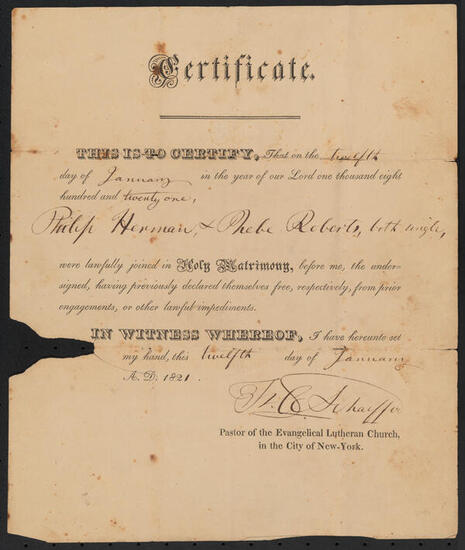 Certificate.
THIS IS TO CERTIFY, That on the twelfth
day of January in the year of our Lord one thousand eight
hundred and twenty one,
Philip Herman, & Phebe Roberts, both single,
were lawfully joined in Holy Matrimony, before me, the under-
signed, having previously declared themselves free, respectively, from prior
engagements, or other lawful impediments.
IN WITNESS WHEREOF, I have hereunto set
my hand, this twelfth day of January
A. D. 1821.
F. C. Schaeffer
Pastor of the Evangelical Lutheran Church,
in the City of New-York.